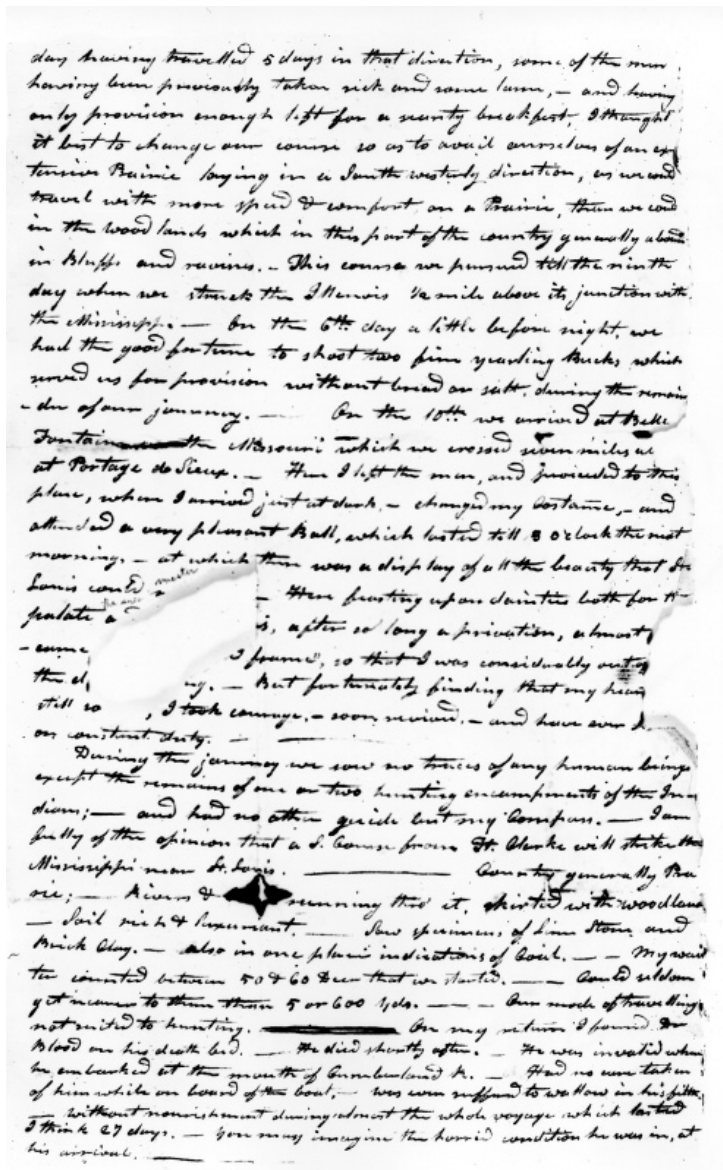 day having travelled 5 days in that direction, some of the men
having been previously taken sick and some lame, – and having
only provision enough left for a scanty breakfast, I thought
it best to change our course so as to avail ourselves of an ex
tensive Prairie laying in a South westerly direction, as we coud
travel with more speed & comfort on a Prairie, than we coud
in the wood lands which in this part of the country generally abound
in Bluffs and ravines. – This course we pursued till the ninth
day when we struck the Illenois ½ mile above its junction with
the Mississippi. — On the 6th day a little before night, we
had the good fortune to shoot two fine yearling Bucks which
served us for provision without bread or salt, during the remain
-der of our journey. — On the 10th we arrived at Belle
Fontain the Missouri which we crossed seven miles
at Portage de Sieux. – Here I left the men, and proceeded to this
place, where I arrived just at dark, – changed my Costume, – and
attended a very pleasant Ball, which lasted till 3 o'clock the next
morning. – at which there was a display of all the beauty that St
Louis could muster – Here feasting upon dainties both for
palate a s, after so long a privation, almost
-came frame, so that I was considerably out of
the d y. – But fortunately finding that my
still so , I took courage, – soon revived, – and have ever
on constant duty. —
During the journey we saw no traces of any human beings
except the remains of one or two hunting encampments of the In
dians; — and had no other guide but my Compass. — I am
fully of the opinion that a S. Course from Ft. Clarke will strike the
Mississippi near St. Louis. — Country generally Pra
rie; — Rivers & running thro' it, skirted with woodland
— Soil rich & luxuriant. — Saw specimens of Lime Stone and
Brick Clay. — also in one place indications of Coal. — — My wai
ter counted between 50 & 60 Deer that we started. — — Could seldom
get nearer to them than 5 or 600 yds. — — Our mode of travelling
not suited to hunting. — On my return I found Dr
Blood on his death bed. — He died shortly after. — He was invalid when
he embarked at the mouth of Cumberland R. — Had no care taken
of him while on board of the boat, – was even suffered to wallow in his filth,
— without nourishment during almost the whole voyage which lasted
I think 27 days. — You may imagine the horrid condition he was in, at
his arrival. —